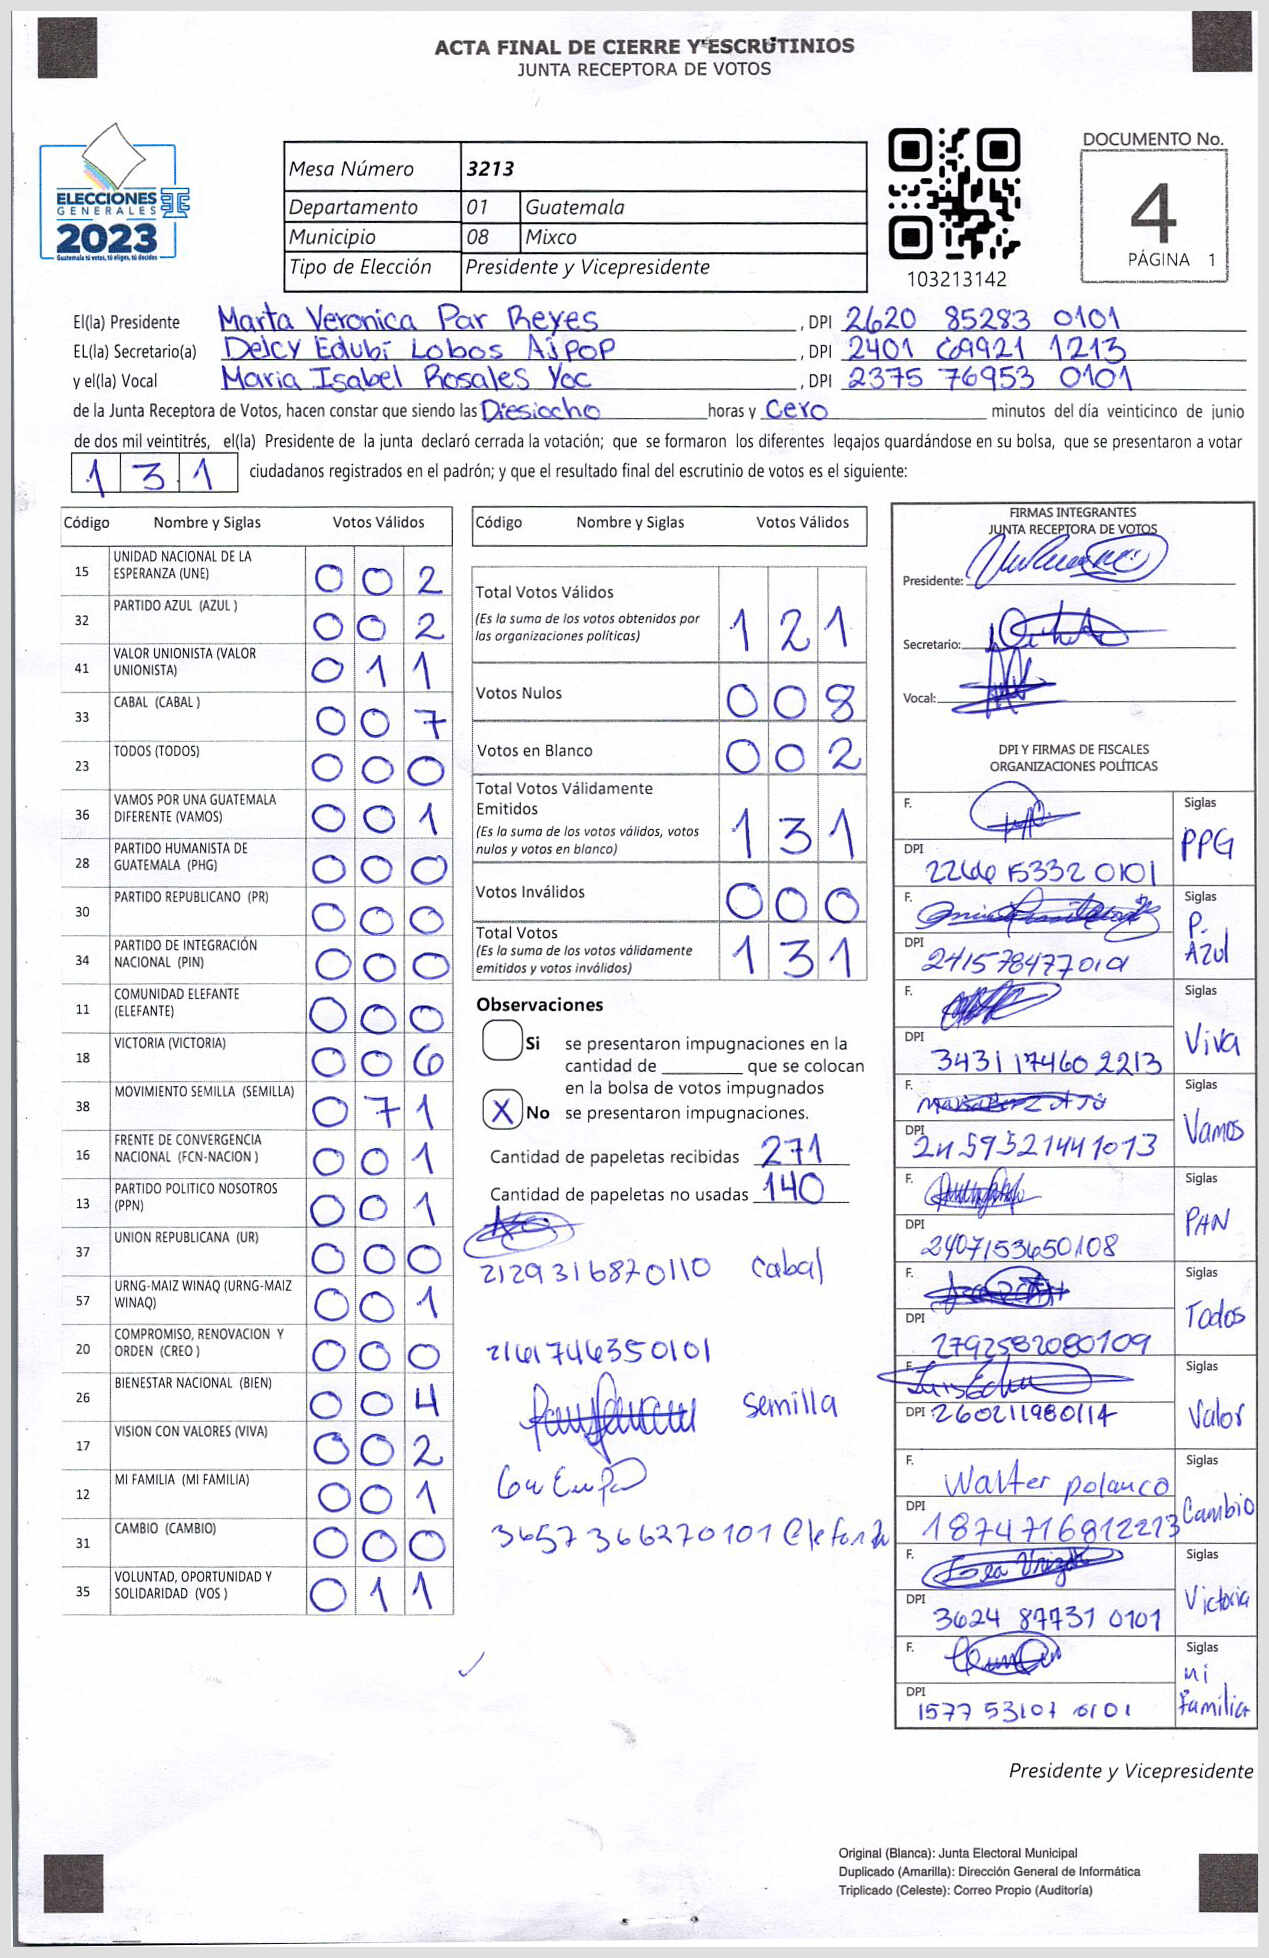 ACTA FINAL DE CIERRE Y ESCRUTINIOS
JUNTA RECEPTORA DE VOTOS
ELECCIONES
GENERALES
2023
Guatemala tú votas, tú eliges, tú decides
Mesa Número 3213
Departamento 01 Guatemala
Municipio 08 Mixco
Tipo de Elección Presidente y Vicepresidente
103213142
DOCUMENTO No.
4
PÁGINA 1
El(la) Presidente Marta Veronica Par Reyes, DPI 2620 85283 0101
EL(la) Secretario(a) Delcy Edubí Lobos Ajpop, DPI 2401 69921 1213
y el(la) Vocal Maria Isabel Rosales Yoc, DPI 2375 76953 0101
de la Junta Receptora de Votos, hacen constar que siendo las Diesiocho horas y Cero minutos del día veinticinco de junio
de dos mil veintitrés, el(la) Presidente de la junta declaró cerrada la votación; que se formaron los diferentes legajos guardándose en su bolsa, que se presentaron a votar
131 ciudadanos registrados en el padrón; y que el resultado final del escrutinio de votos es el siguiente:
Código Nombre y Siglas Votos Válidos
15 UNIDAD NACIONAL DE LA ESPERANZA (UNE) 002
32 PARTIDO AZUL (AZUL ) 002
41 VALOR UNIONISTA (VALOR UNIONISTA) 011
33 CABAL (CABAL ) 007
23 TODOS (TODOS) 000
36 VAMOS POR UNA GUATEMALA DIFERENTE (VAMOS) 001
28 PARTIDO HUMANISTA DE GUATEMALA (PHG) 000
30 PARTIDO REPUBLICANO (PR) 000
34 PARTIDO DE INTEGRACIÓN NACIONAL (PIN) 000
11 COMUNIDAD ELEFANTE (ELEFANTE) 000
18 VICTORIA (VICTORIA) 006
38 MOVIMIENTO SEMILLA (SEMILLA) 071
16 FRENTE DE CONVERGENCIA NACIONAL (FCN-NACION ) 001
13 PARTIDO POLITICO NOSOTROS (PPN) 001
37 UNION REPUBLICANA (UR) 000
57 URNG-MAIZ WINAQ (URNG-MAIZ WINAQ) 001
20 COMPROMISO, RENOVACION Y ORDEN (CREO ) 000
26 BIENESTAR NACIONAL (BIEN) 004
17 VISION CON VALORES (VIVA) 002
12 MI FAMILIA (MI FAMILIA) 001
31 CAMBIO (CAMBIO) 000
35 VOLUNTAD, OPORTUNIDAD Y SOLIDARIDAD (VOS ) 011
Código Nombre y Siglas Votos Válidos
Total Votos Válidos 121
(Es la suma de los votos obtenidos por
las organizaciones políticas)
Votos Nulos 008
Votos en Blanco 002
Total Votos Válidamente
Emitidos 131
(Es la suma de los votos válidos, votos
nulos y votos en blanco)
Votos Inválidos 000
Total Votos 131
(Es la suma de los votos válidamente
emitidos y votos inválidos)
Observaciones
Si se presentaron impugnaciones en la
cantidad de ________ que se colocan
en la bolsa de votos impugnados
X No se presentaron impugnaciones.
Cantidad de papeletas recibidas 271
Cantidad de papeletas no usadas 140
2129316870110 Cabal
2161746350101
Semilla
3657366270101
FIRMAS INTEGRANTES
JUNTA RECEPTORA DE VOTOS
Presidente:
Secretario:
Vocal:
DPI Y FIRMAS DE FISCALES
ORGANIZACIONES POLÍTICAS
F. Siglas
PPG
DPI 2266 15332 0101
F. Siglas
P. Azul
DPI
F. Siglas
Viva
DPI 3431 17460 2213
F. Siglas
Vamos
DPI
F. Siglas
PAN
DPI 2407153650108
F. Siglas
Todos
DPI 2792582080109
F. Siglas
Valor
DPI 260211980114
F. Walter polanco Siglas
Cambio
DPI 1874716812213
F. Siglas
Victoria
DPI 3624 87731 0101
F. Siglas
mi familia
DPI 1577 53107 0101
Presidente y Vicepresidente
Original (Blanca): Junta Electoral Municipal
Duplicado (Amarilla): Dirección General de Informática
Triplicado (Celeste): Correo Propio (Auditoría)